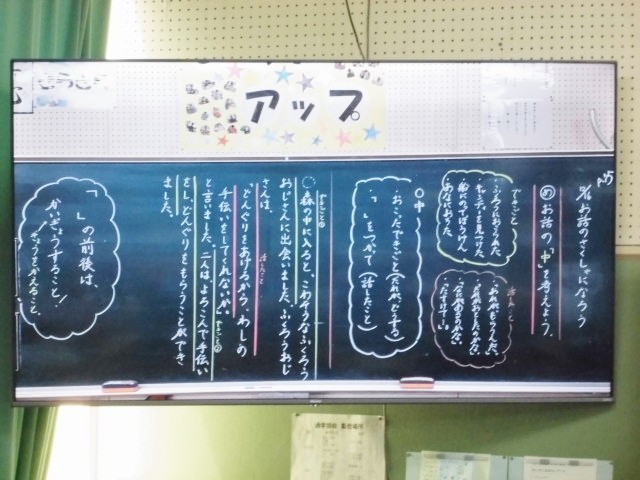 アップ
お話のさくしゃになろう
め お話の「中」を考えよう。
できごと
・ふくろうにおこられた。
・キャンディーを見つけた。
・船にのってぼうけん
・あなにおちた。
話したこと
「たすけて!」
○中
・おこったできごと(だれが、どうする)
・「 」をつかって(話したこと)
できごと①
○森の中に入ると、こわそうなふくろう
おじさんに出会いました。ふくろうおじ
さんは、
話したこと
「どんぐりをあげるから、わしの
手伝いをしてくれないか。」
できごと②
と言いました。二人はよろこんで手伝い
をし、どんぐりをもらうことができ
ました。
「 」の前後は、
かいぎょうすること!
ぎょうをかえること。